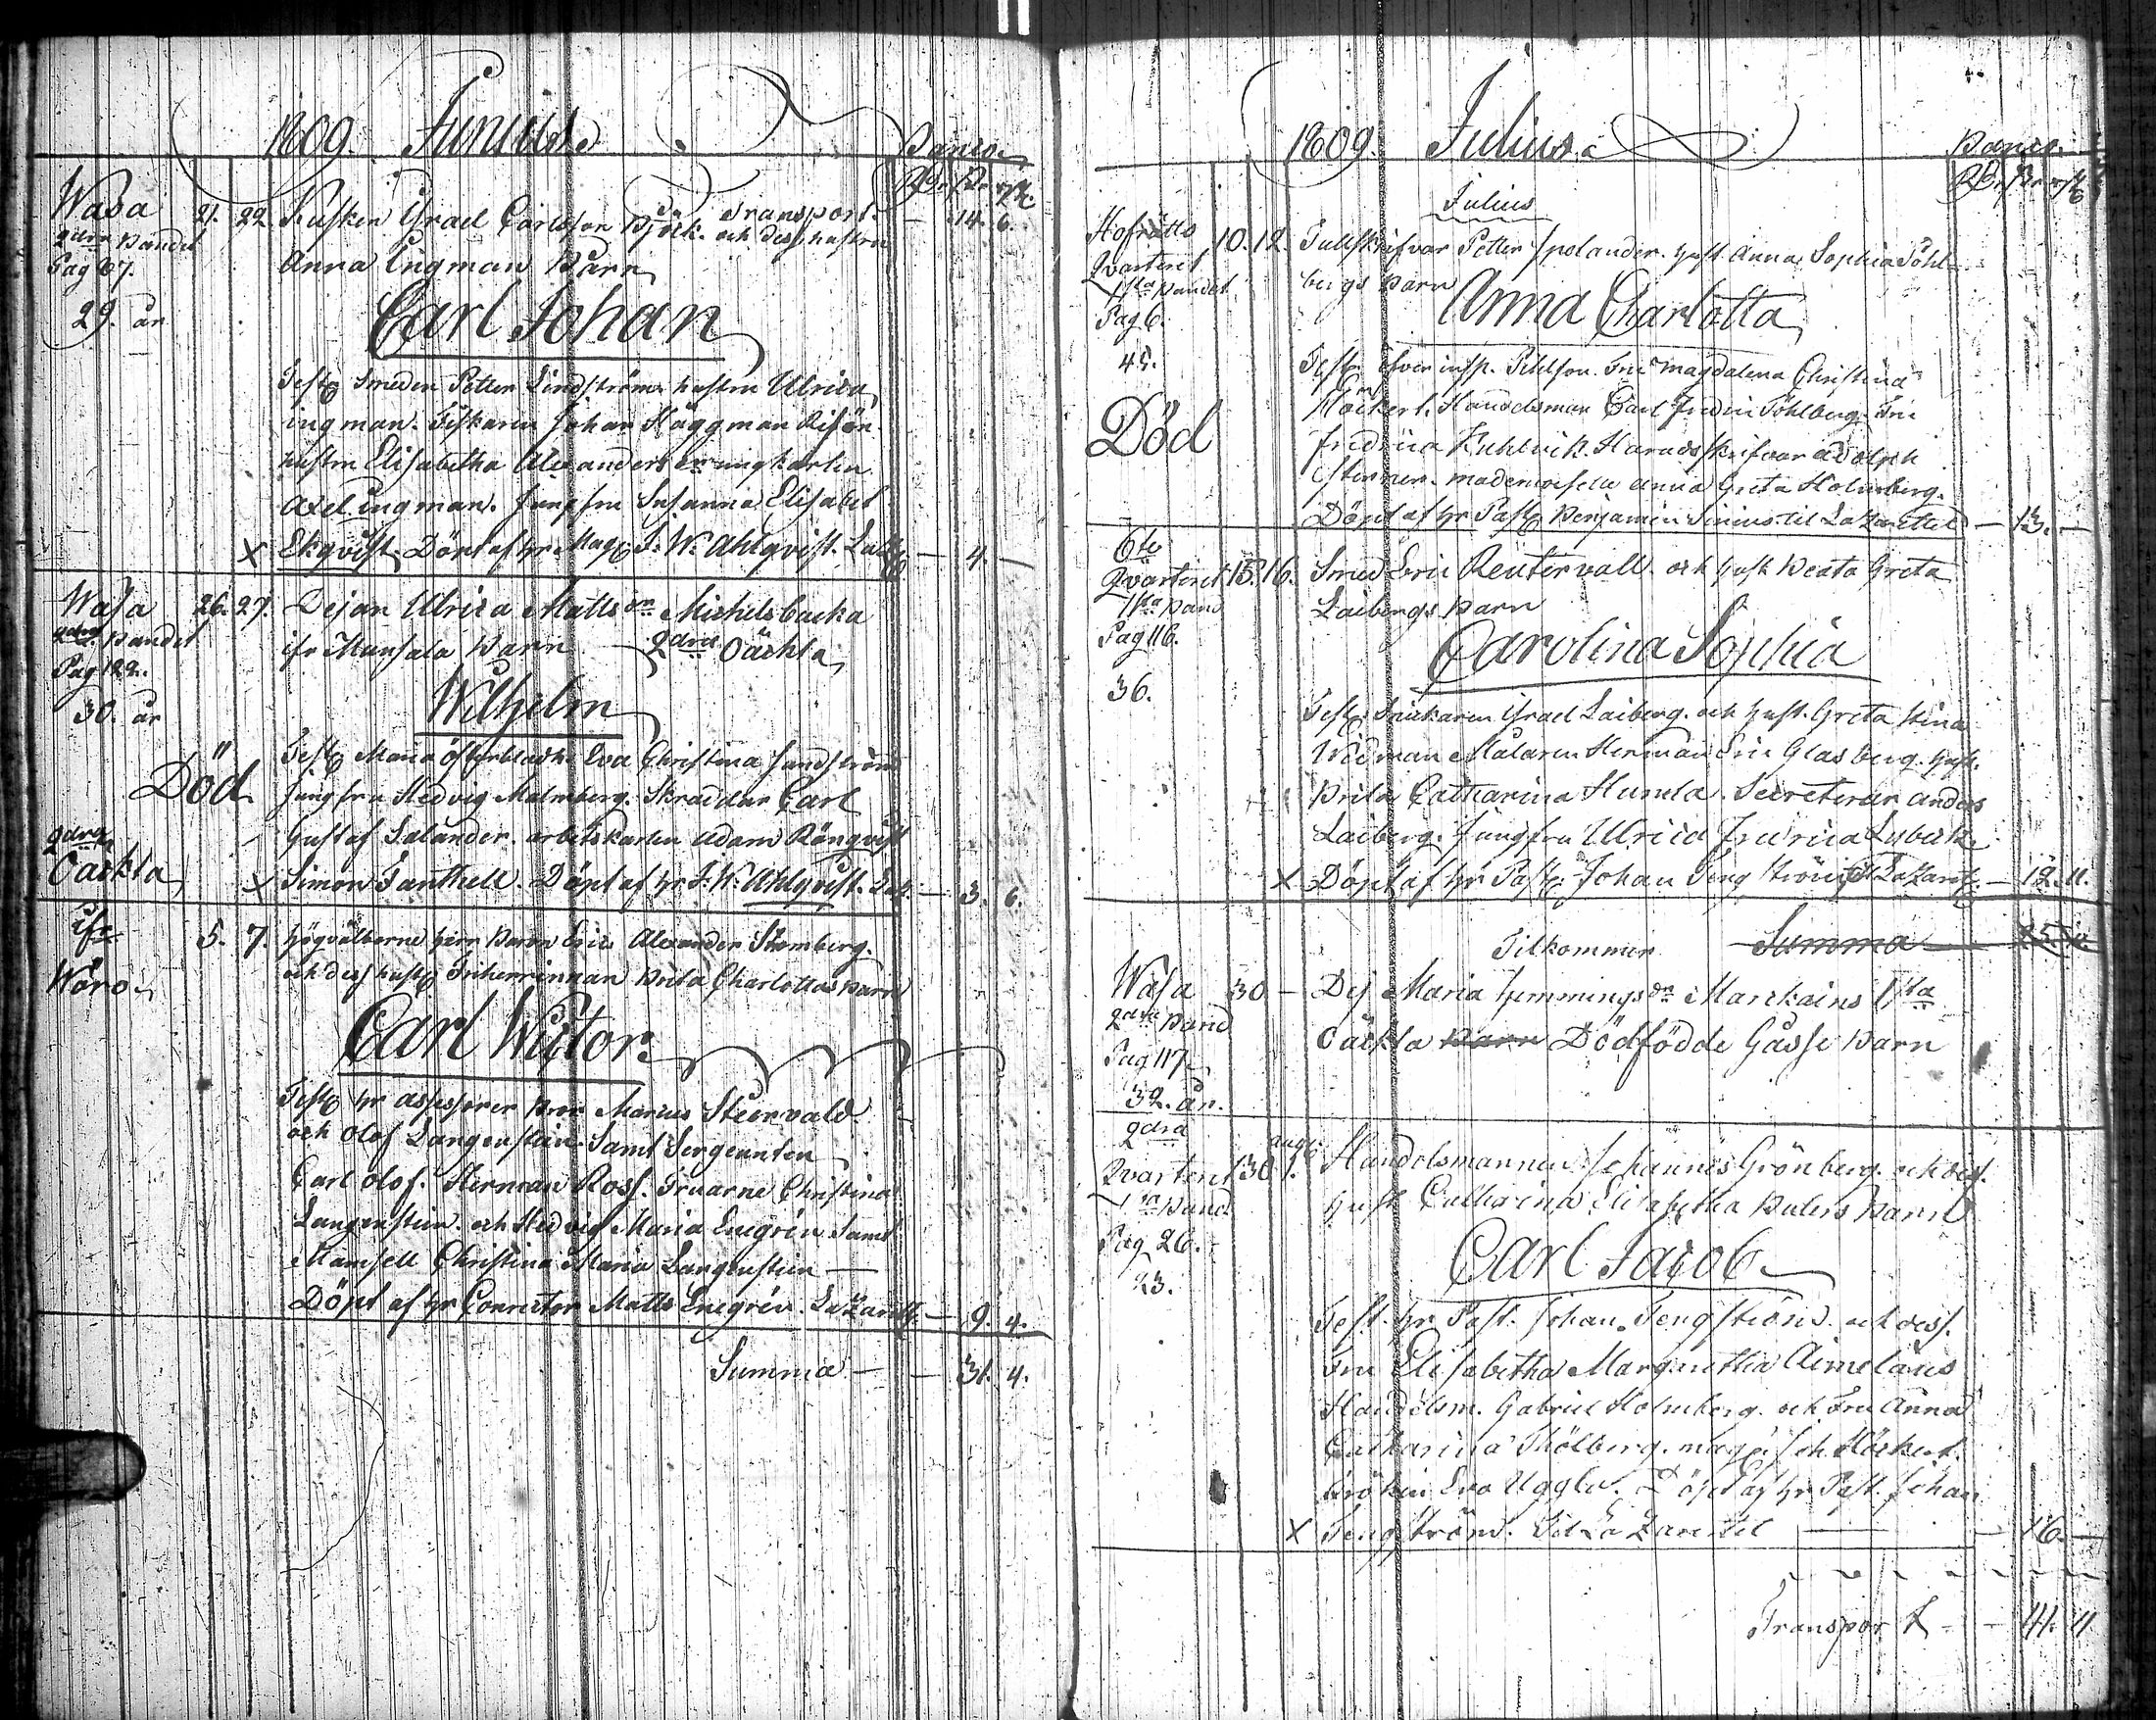 1809. Junius.
Banco.
Rdr. sk. r/st.
Wasa 21. 22. Kusken Israel Carlsson Björk. och dess hustru
Transport. — 14. 6.
2dra Bandet
Pag 67.
29. år
Anna Ingman Barn
Carl Johan
Test: Smeden Petter Lindström hustru Ulrica
ingman. Fiskaren Johan Häggman Risön
hustru Elisabetha Alexanders dr ungkarlen
Axel ingman. Jungfru Susanna Elisabet
x Ekqvist. Döpt af hr Mag: J: W: Ahlqvist. Laz: — 4. —
Wasa 26. 27. Dejan Ulrica Matts dr Michelsbacka
2dra Bandet
Pag 122.
30. år
ifr Munsala Barn 2dra Oächta
Wilhelm
Död
Test: Maria Österbladh. Eva Christina Sundström
Jungfru Hedvig Malmberg. Skräddar Carl
Gustaf Salander. arbetskarlen Adam Rönqvist
2dra
Oächta
x Simon Fanthell. Döpt af hr J. W. Ahlqvist. Laz: — 3. 6.
ifr
Wörå
5. 7. Högvälborne herr Baron Eric Alexander Stromberg.
och dess hust: Friherrinnan Brita Charlottas barn
Carl Wictor
Test: hr assessorer Bror Marius Steenvald
och Olof Langenstein. Samt Sergeanten
Carl Olof. Herman Ross. Fruarne Christina
Langenstein. och Hedvig Maria Enegrén Samt
Mamsell Christina Maria Langenstein —
Döpt af hr Conrector Matts Enegrén. Lazarett. — 9. 4.
Summa — — 31. 4.
1809. Julius.
Banco.
Rdr. sk. r/st
Julius
Hofrätts
Qvarteret
1sta Bandet
Pag 6.
45.
10. 12. Tullskrifvar Petter Spolander. hust. Anna Sophia Pöhl-
bergs Barn
Anna Charlotta
Död
Test: öfver insp. Pehlson. Fru Magdalena Christina
Höckert. Handelsman Carl Fredric Pöhlberg. Fru
Fredrica Kuhlvik. Haradsskrifvar Adolph
Mademoiselle Anna Greta Holmberg.
Döpt af hr Past: Benjamin Sinius til Lazarettet — 13. —
6te
Qvarteret
1sta Band
Pag 116.
36.
15. 16. Smed Eric Reutervall. och hust Beata Greta
Laibergs Barn
Carolina Sophia
Test: Snickaren Israel Laiberg. och hust. Greta Stina
Widman Målaren Herman Eric Glasberg. hust.
Brita Catharina Humla. Secreterar anders
Laiberg. Jungfru Ulrica Fredrica Lybeck
x Döpt af hr Past: Johan Tengström til Lazarett. — 12. 11.
Tilkommer Summa 25. 11.
Wasa
2dra Band
Pag 117
32. år.
30 — Dej Maria Hemmings dr Marckains 1sta
Oächta Barn Dödfödde Gåsse Barn
2dra
Qvarteret
1sta Band
Pag 26.
23.
30 aug: 1. Handelsmannen Johannes Grönberg. och dess.
hust Catharina Elisabetha Barn
Carl Jacob
Test. hr Past. Johan Tengström. och dess.
Fru Elisabetha Margaretha Aimelæus
Handelsm. Gabriel Holmberg. och Fru Anna
Catharina Thölberg. mag: Joh. Höckert.
Fröken Eva Uggla. Döpt af hr Past. Johan
x Tengström. Til Lazarettet — — 16. —
Transport — — 41. 11.